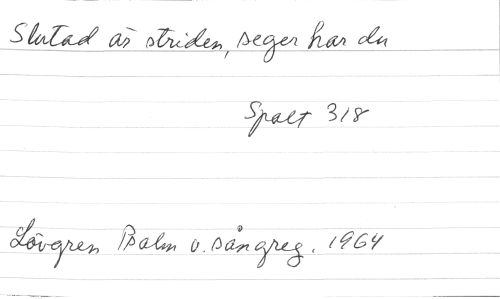 Slutad är striden, seger har du
Spalt 318
Lövgren Psalm o. sångreg. 1964